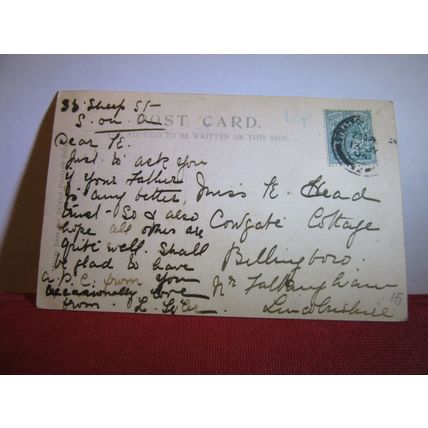 33 Sheep St
S. on. A
POST CARD.
ADDRESS TO BE WRITTEN ON THIS SIDE.
Dear E.
Just to ask you
if your Father
is any better,
trust so & also
hope all others are
quite well. Shall
be glad to have
a P.C. from you
occasionally love
from L.
Miss E. Head
Cowgate Cottage
Billingboro
Nr Falkingham
Lincolnshire
15